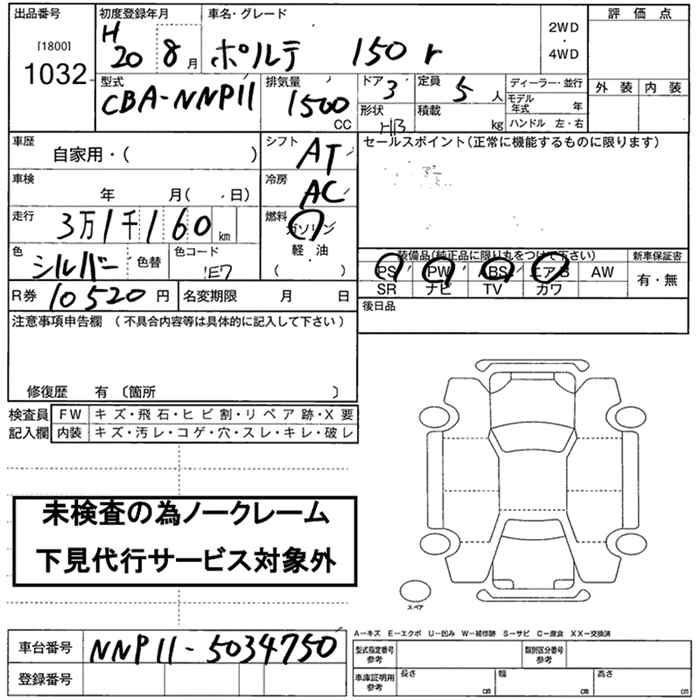 出品番号 初度登録年月 車名・グレード 評価点
[1800] 1032 H20 8月 ポルテ 150r 2WD・4WD
外装 内装
型式 排気量 ドア 3 定員 5人 ディーラー・並行
CBA-NNP11 1500CC 形状 HB 積載 kg モデル年式 年
ハンドル 左・右
車歴 自家用・( ) シフト AT セールスポイント(正常に機能するものに限ります)
車検 年 月( .日) 冷房 AC
走行 3万1千160km 燃料 ガソリン 軽・油 ( )
色 シルバー 色替 色コード 1E7
装備品(純正品に限り丸をつけて下さい) 新車保証書
PS PW ABS エアB AW 有・無
SR ナビ TV カワ
R券 10520円 名変期限 月 日 後日品
注意事項申告欄 (不具合内容等は具体的に記入して下さい)
修復歴 有 〔箇所 〕
検査員 FW キズ・飛石・ヒビ割・リペア跡・X要
記入欄 内装 キズ・汚レ・コゲ・穴・スレ・キレ・破レ
未検査の為ノークレーム
下見代行サービス対象外
スペア
A－キズ E－エクボ U－凹み W－補修跡 S－サビ C－腐食 XX－交換済
車台番号 NNP11-5034750 型式指定番号 参考 類別区分番号 参考
登録番号 車庫証明用 参考 長さ cm 幅 cm 高さ cm